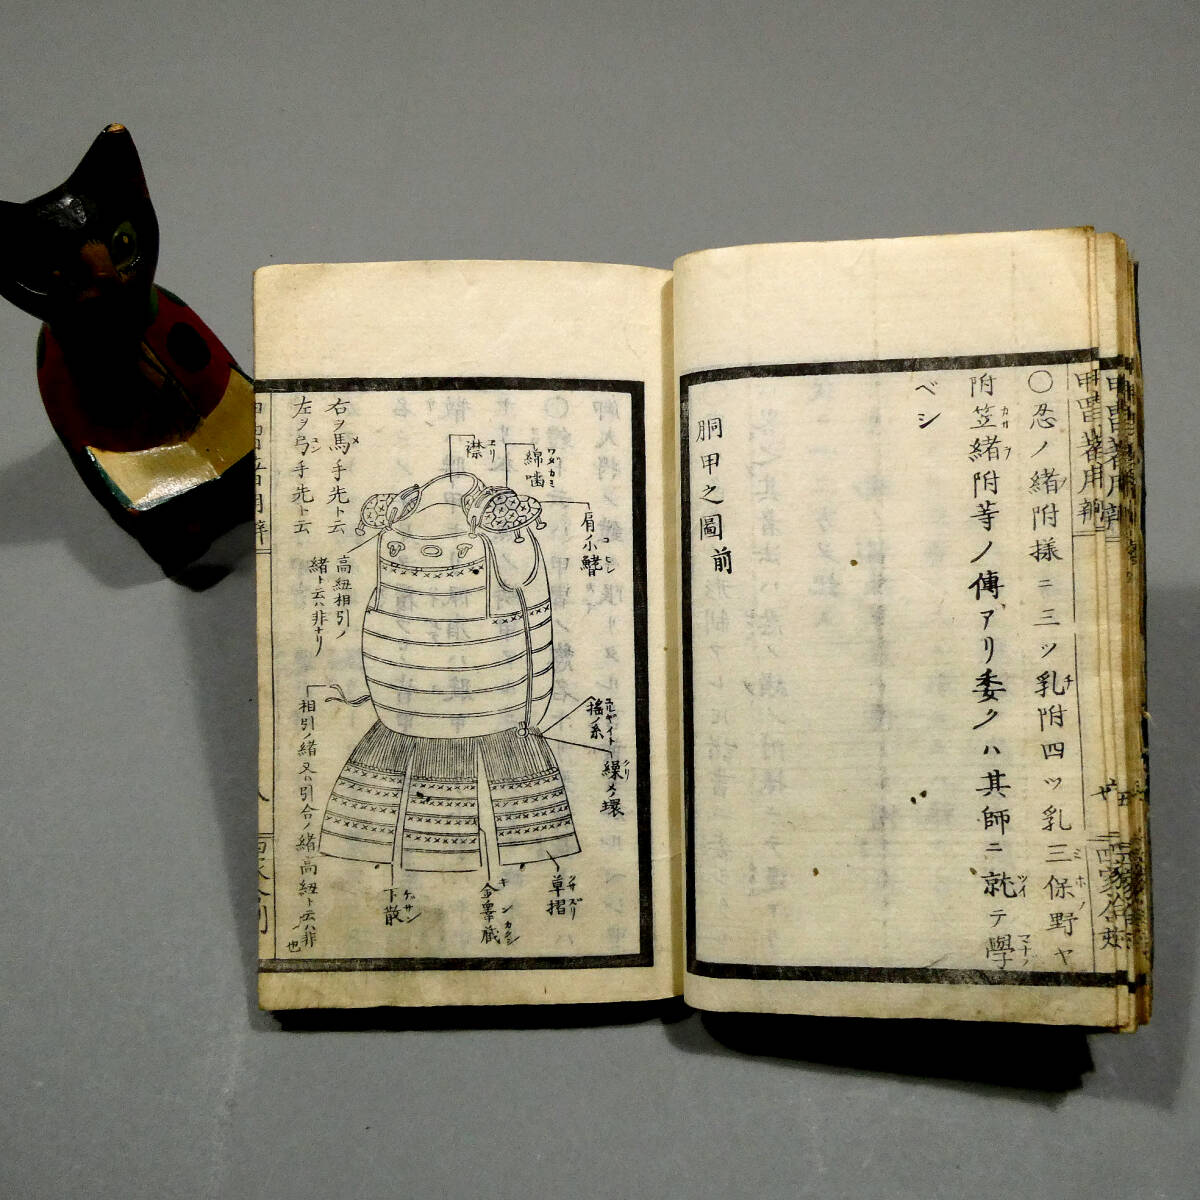 〇忍ノ緒附様ニ三ツ乳附四ツ乳三保野ヤ
附笠緒附等ノ傳アリ委クハ其師ニ就テ學
ベシ
胴甲之圖前
綿噛
ワタカミ
襟
ヱリ
右ヲ馬手先ト云
左ヲ弓手先ト云
高紐相引ノ
緒ト云ハ非ナリ
繰〆ノ環
揺ノ糸
相引ノ緒又ハ引合ノ緒高紐ト云ハ非也
草摺
クサズリ
下散
ゲッサン
甲冑着用辨